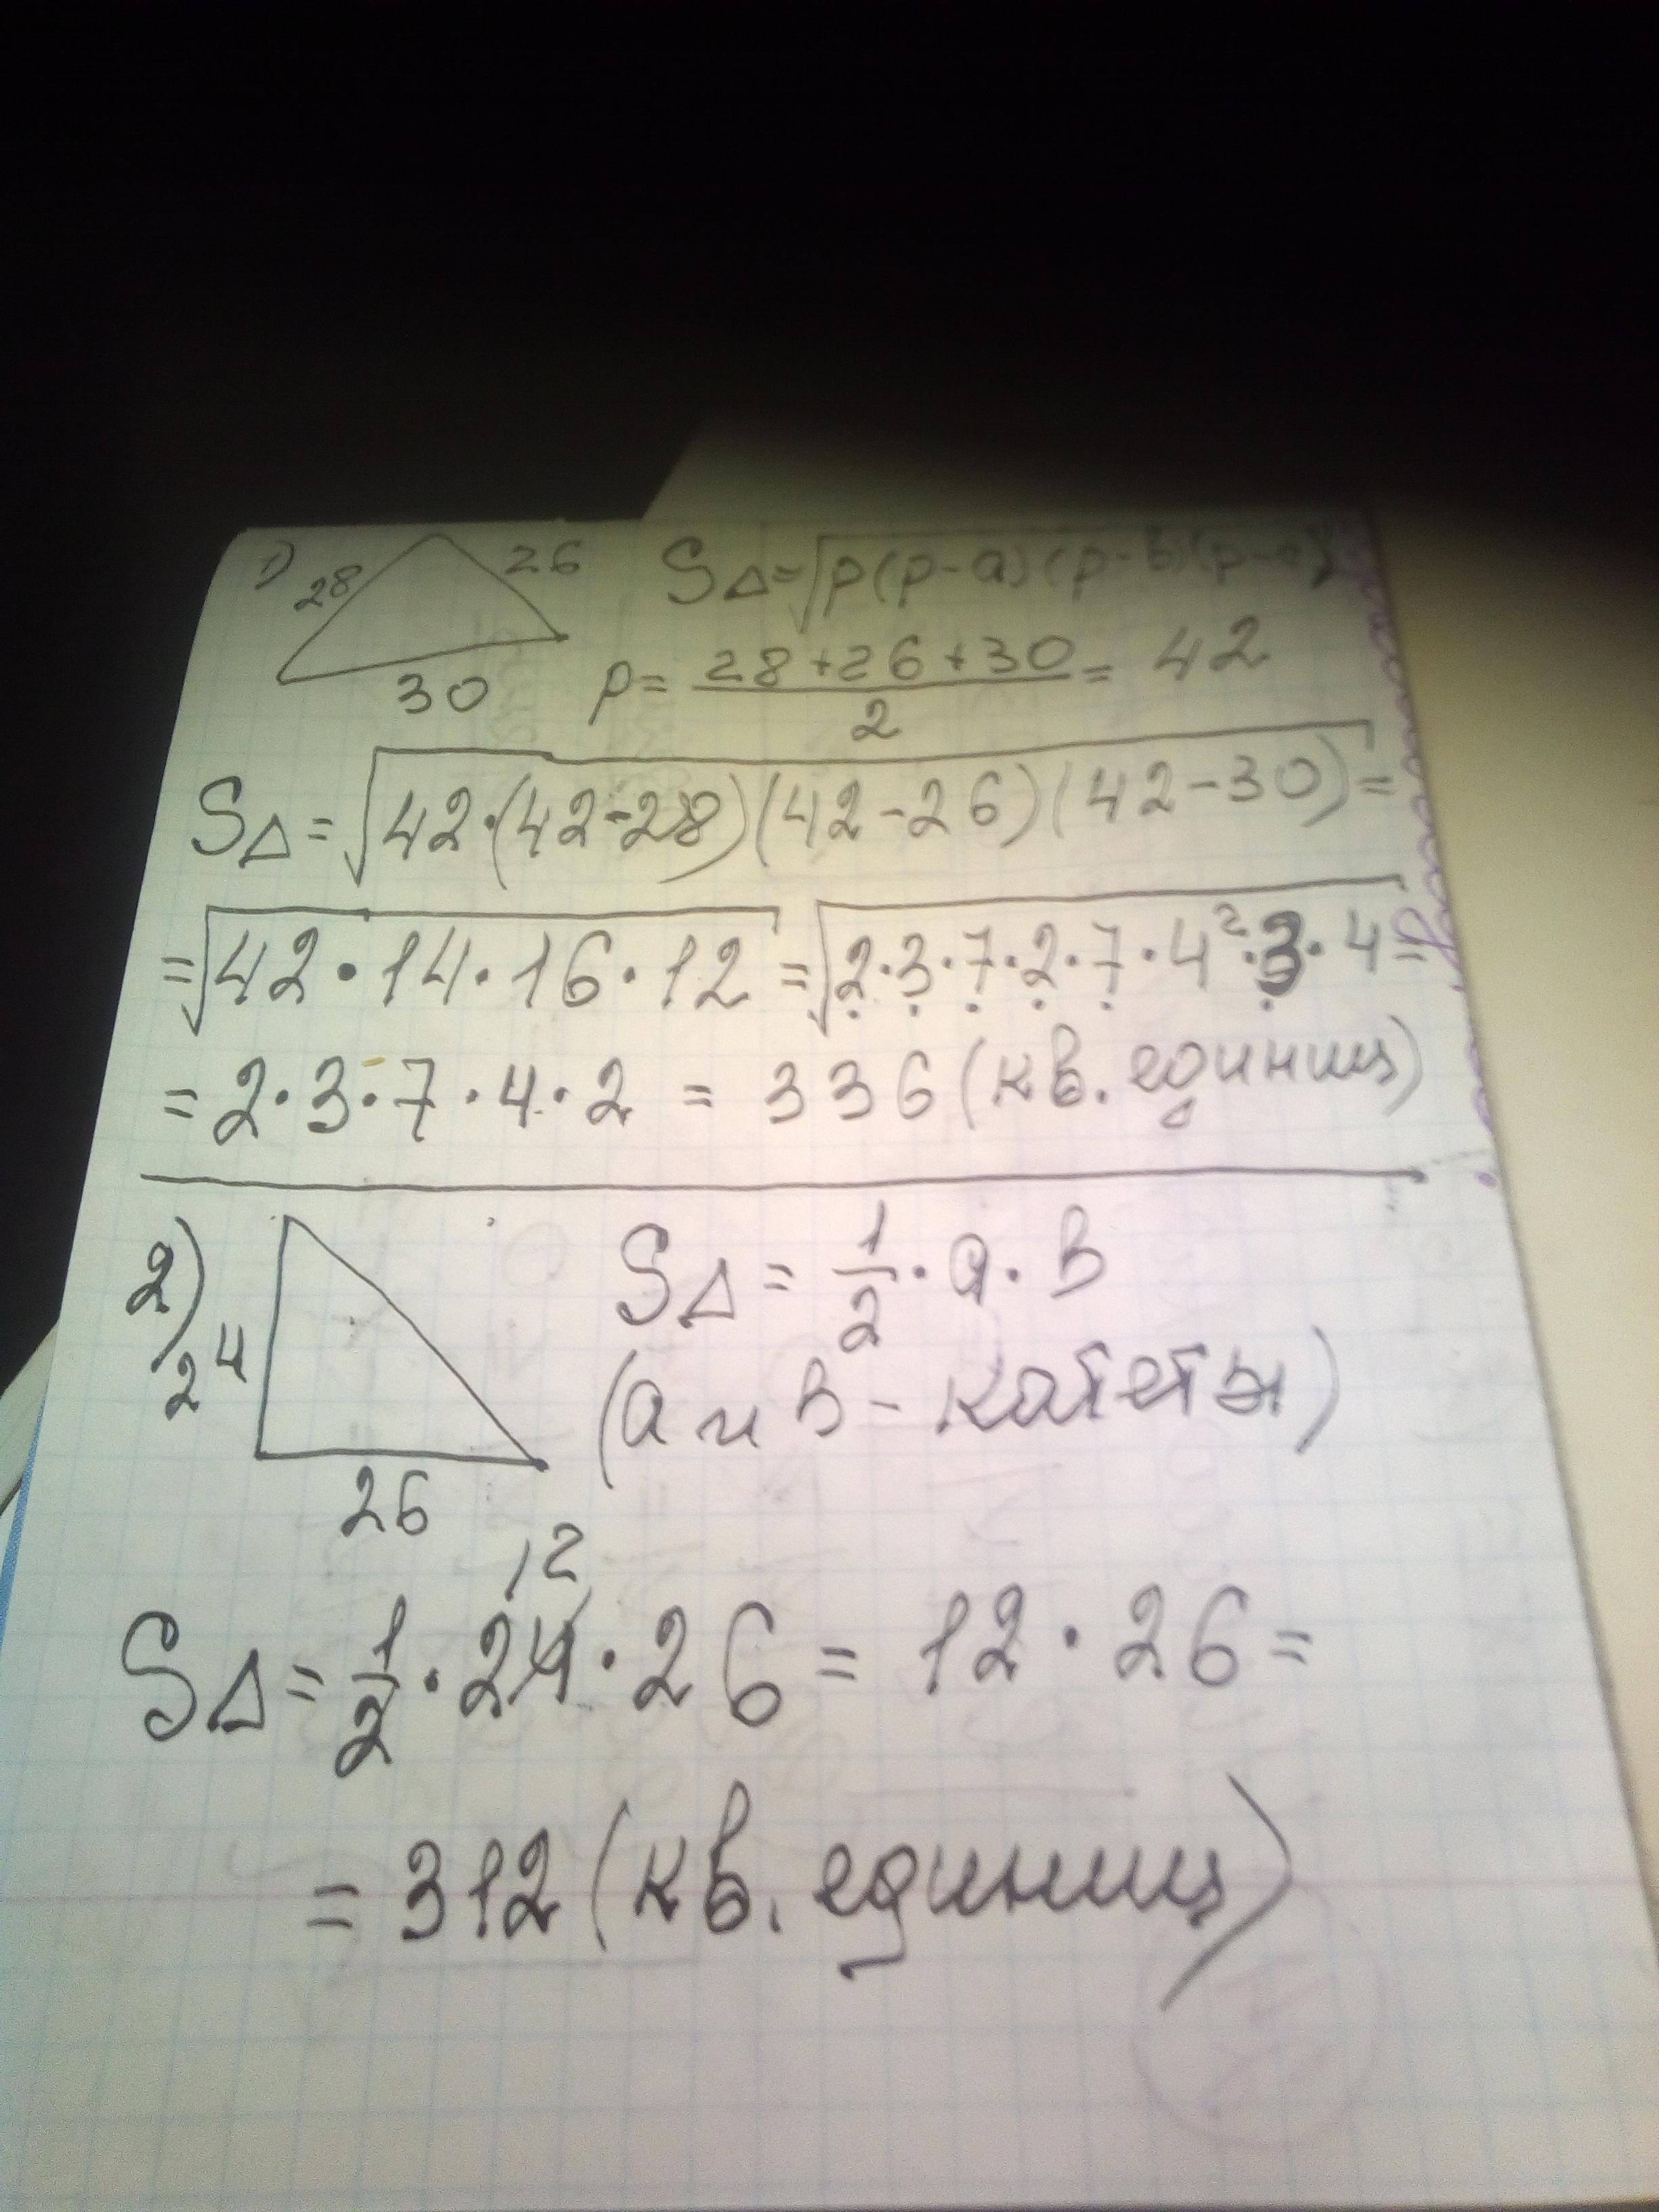 1) 28 26 S△=√p(p-a)(p-b)(p-c)
30 p= 28+26+30/2 = 42
S△=√42·(42-28)(42-26)(42-30)=
=√42·14·16·12=√2·3·7·2·7·4²·3·4=
=2·3·7·4·2=336(кв. единиц)
2) S△=1/2·a·b
24 (a и b - катеты)
26
12
S△=1/2·24·26=12·26=
=312(кв. единиц)